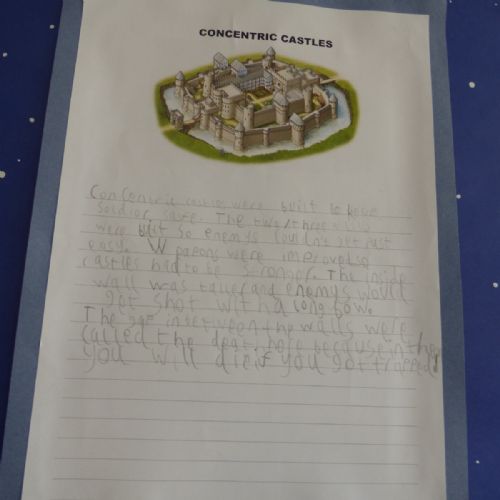 CONCENTRIC CASTLES
Concentric castles were built to keep
soldior safe. The two/three walls
were bilt so enemys couldn't get past
easy. W pasons were improved so
castles had to be stronger. The inside
wall was taller and enemys would
get shot with a long bow.
The gap in between the walls were
called the deat hole because in ther
you will die if you got trapped